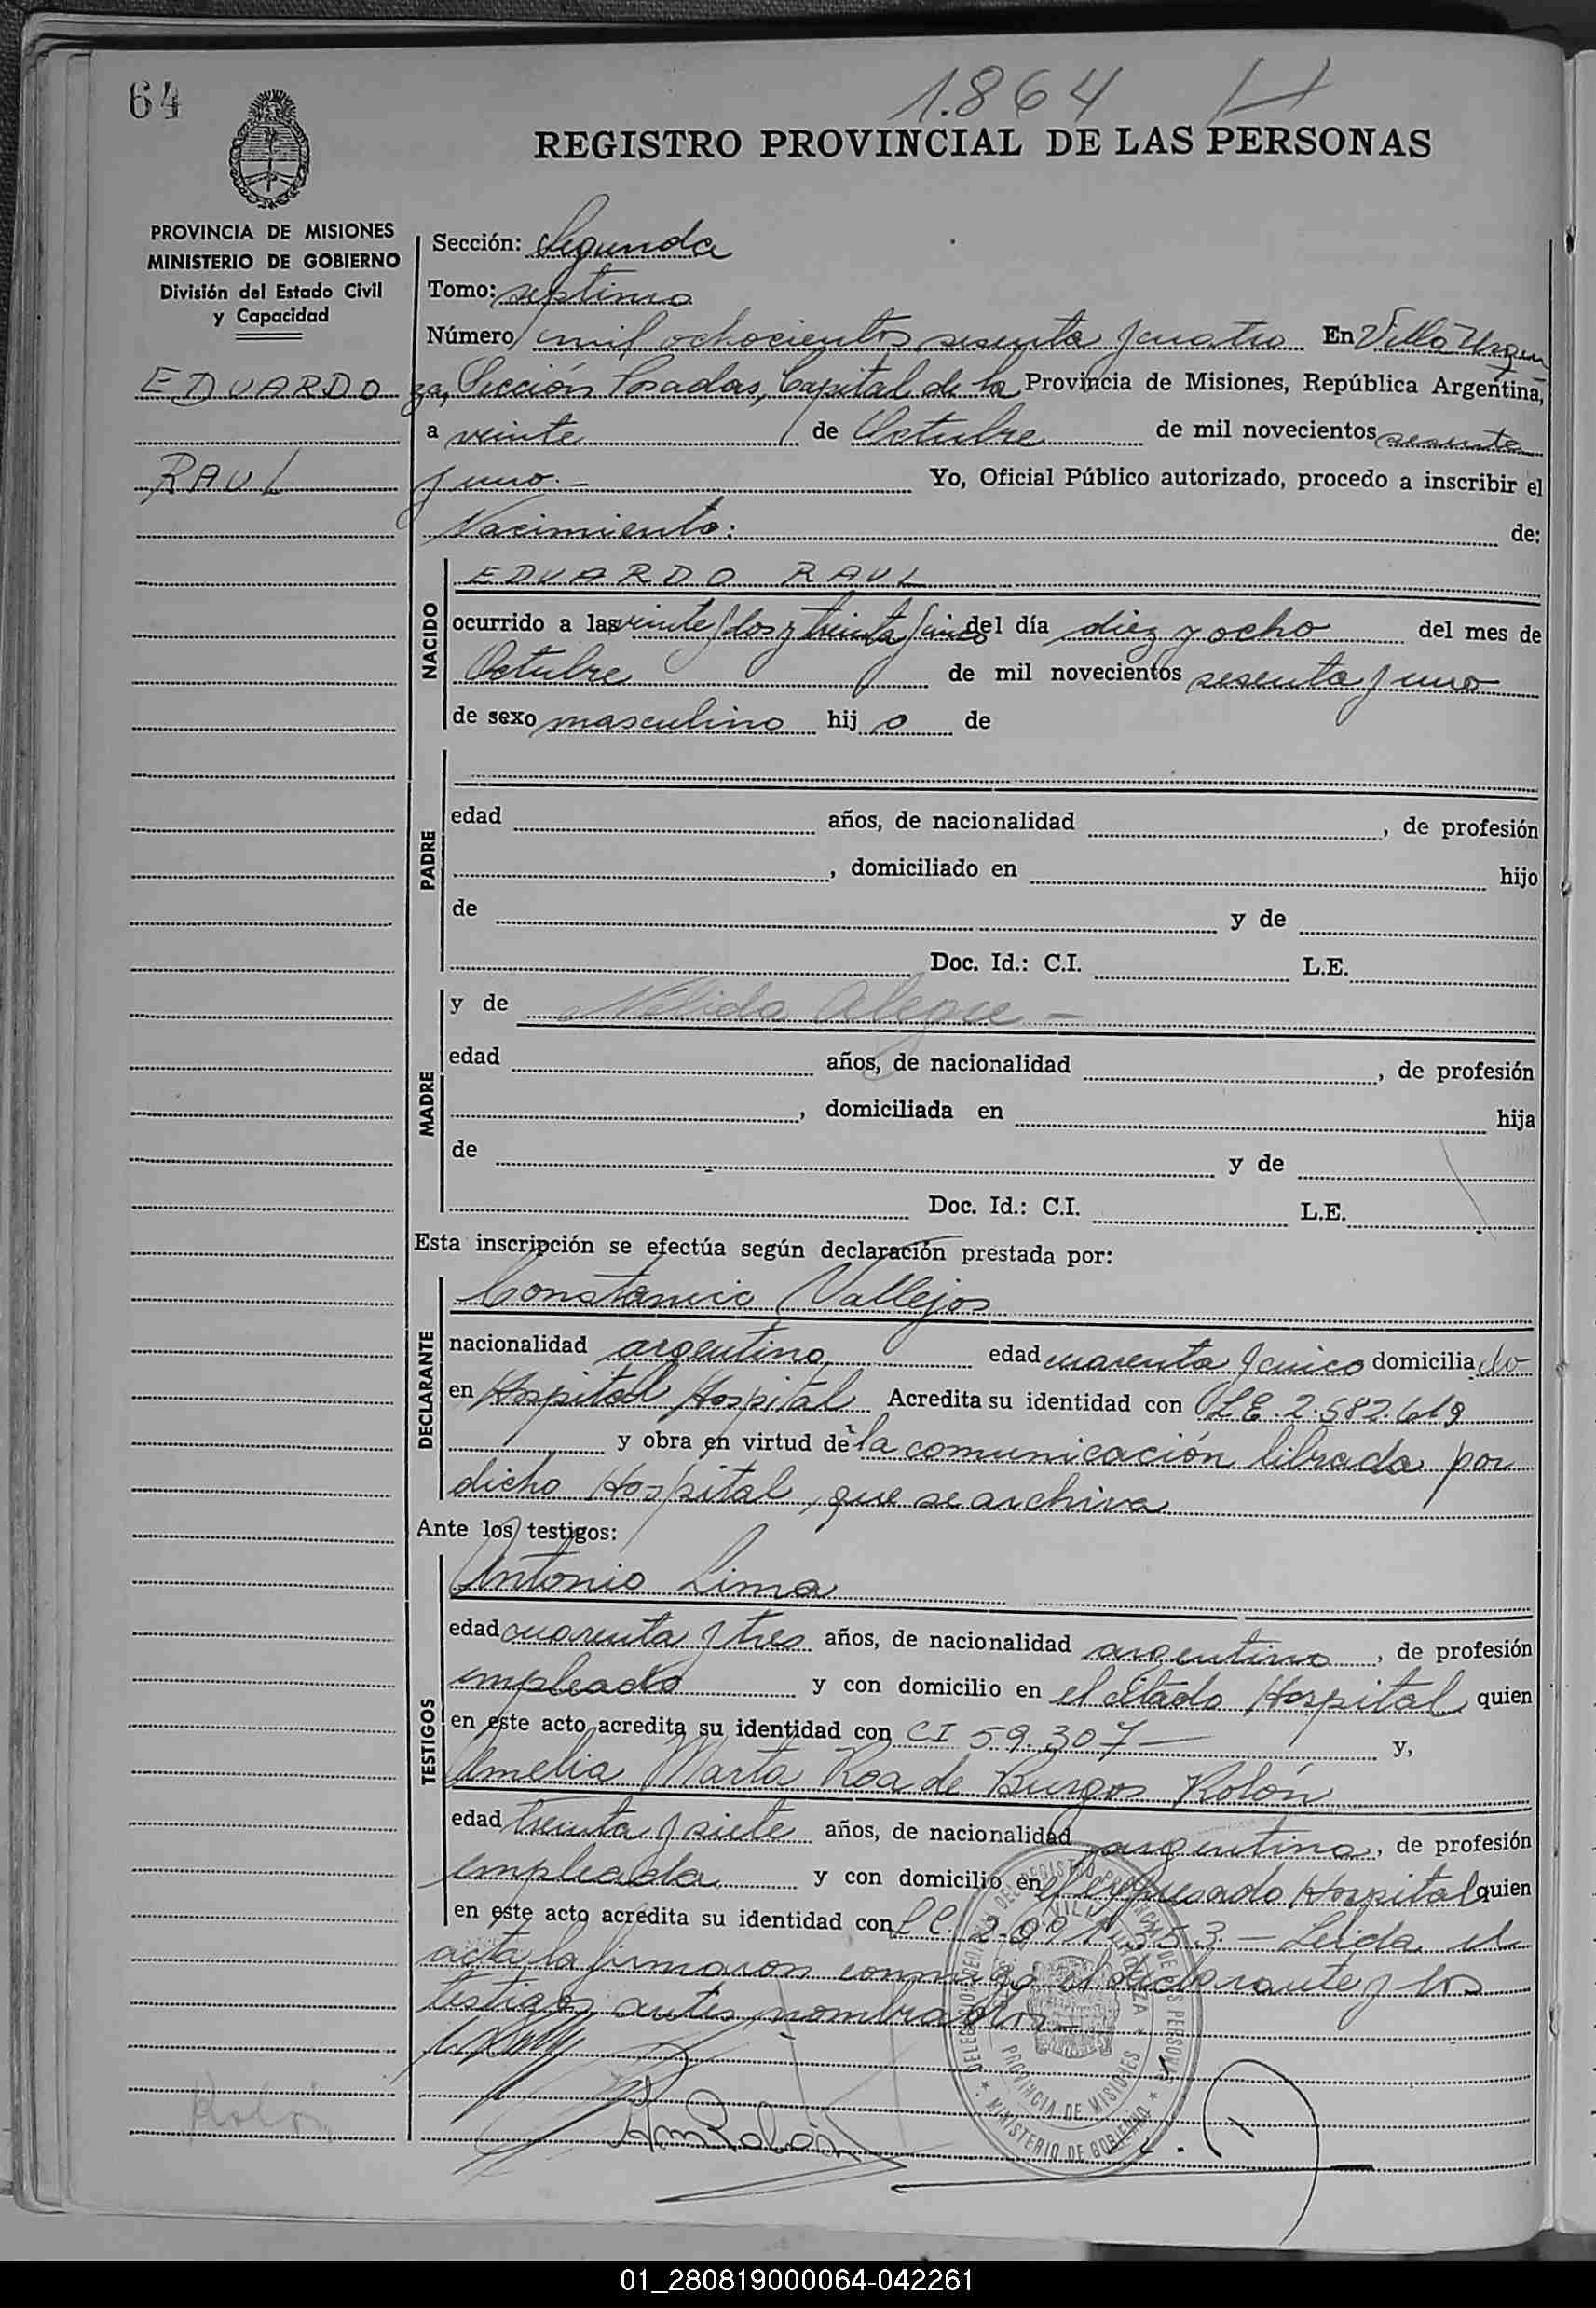 64
1.864 H
REGISTRO PROVINCIAL DE LAS PERSONAS
PROVINCIA DE MISIONES
MINISTERIO DE GOBIERNO
División del Estado Civil
y Capacidad
EDUARDO
RAUL
Sección: Segunda
Tomo: septimo
Número mil ochocientos sesenta y cuatro En Villa Urqui
za, Sección Posadas, Capital de la Provincia de Misiones, República Argentina,
a veinte de Octubre de mil novecientos sesenta
y uno.- Yo, Oficial Público autorizado, procedo a inscribir el
Nacimiento: de:
NACIDO
EDUARDO RAUL
ocurrido a las veinte y dos y treinta y cinco del día diez y ocho del mes de
Octubre de mil novecientos sesenta y uno
de sexo masculino hij o de
PADRE
edad años, de nacionalidad , de profesión
, domiciliado en hijo
de y de
Doc. Id.: C.I. L.E.
MADRE
y de Nélida Alegre -
edad años, de nacionalidad , de profesión
, domiciliada en hija
de y de
Doc. Id.: C.I. L.E.
Esta inscripción se efectúa según declaración prestada por:
DECLARANTE
Constancio Vallejos
nacionalidad argentino edad cuarenta y cinco domicilia do
en Hospital Hospital Acredita su identidad con LE 2.582.619
y obra en virtud de la comunicación librada por
dicho Hospital, que se archiva
Ante los testigos:
TESTIGOS
Antonio Lima
edad cuarenta y tres años, de nacionalidad argentino, de profesión
empleado y con domicilio en el citado Hospital quien
en este acto acredita su identidad con CI 59.307 - y,
Amelia Marta Roa de Burgos Rolón
edad treinta y siete años, de nacionalidad argentina, de profesión
empleada y con domicilio en el expresado Hospital quien
en este acto acredita su identidad con LC. - Leida el
acta la firmaron conmigo el declarante y los
testigos antes nombrados
AmRolón
Rolón
PROVINCIA DE MISIONES
MINISTERIO DE GOBIERNO
01_280819000064-042261